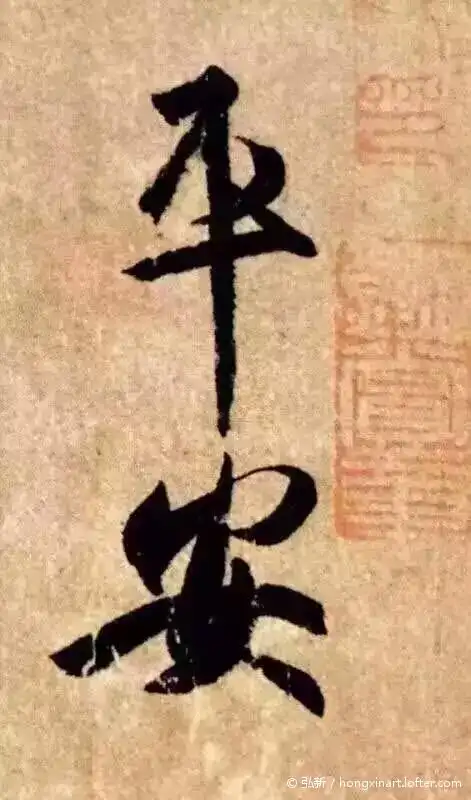 平安
© 弘新 / hongxinart.lofter.com